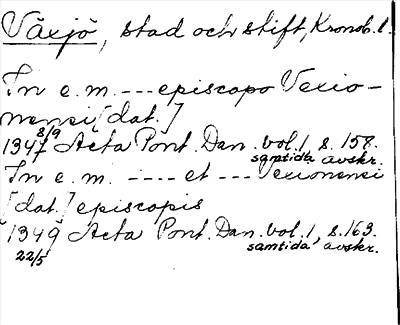 Växjö, stad och stift, Kronob. l.
In e. m. --- episcopo Vexio-
nensi [dat.]
8/9
1347 Acta Pont. Dan. vol. 1, s. 158.
samtida avskr.
In e. m. ---- et --- Vexionensi
[dat.] episcopis
1349 Acta Pont. Dan. vol. 1, s. 163.
22/5 samtida avskr.